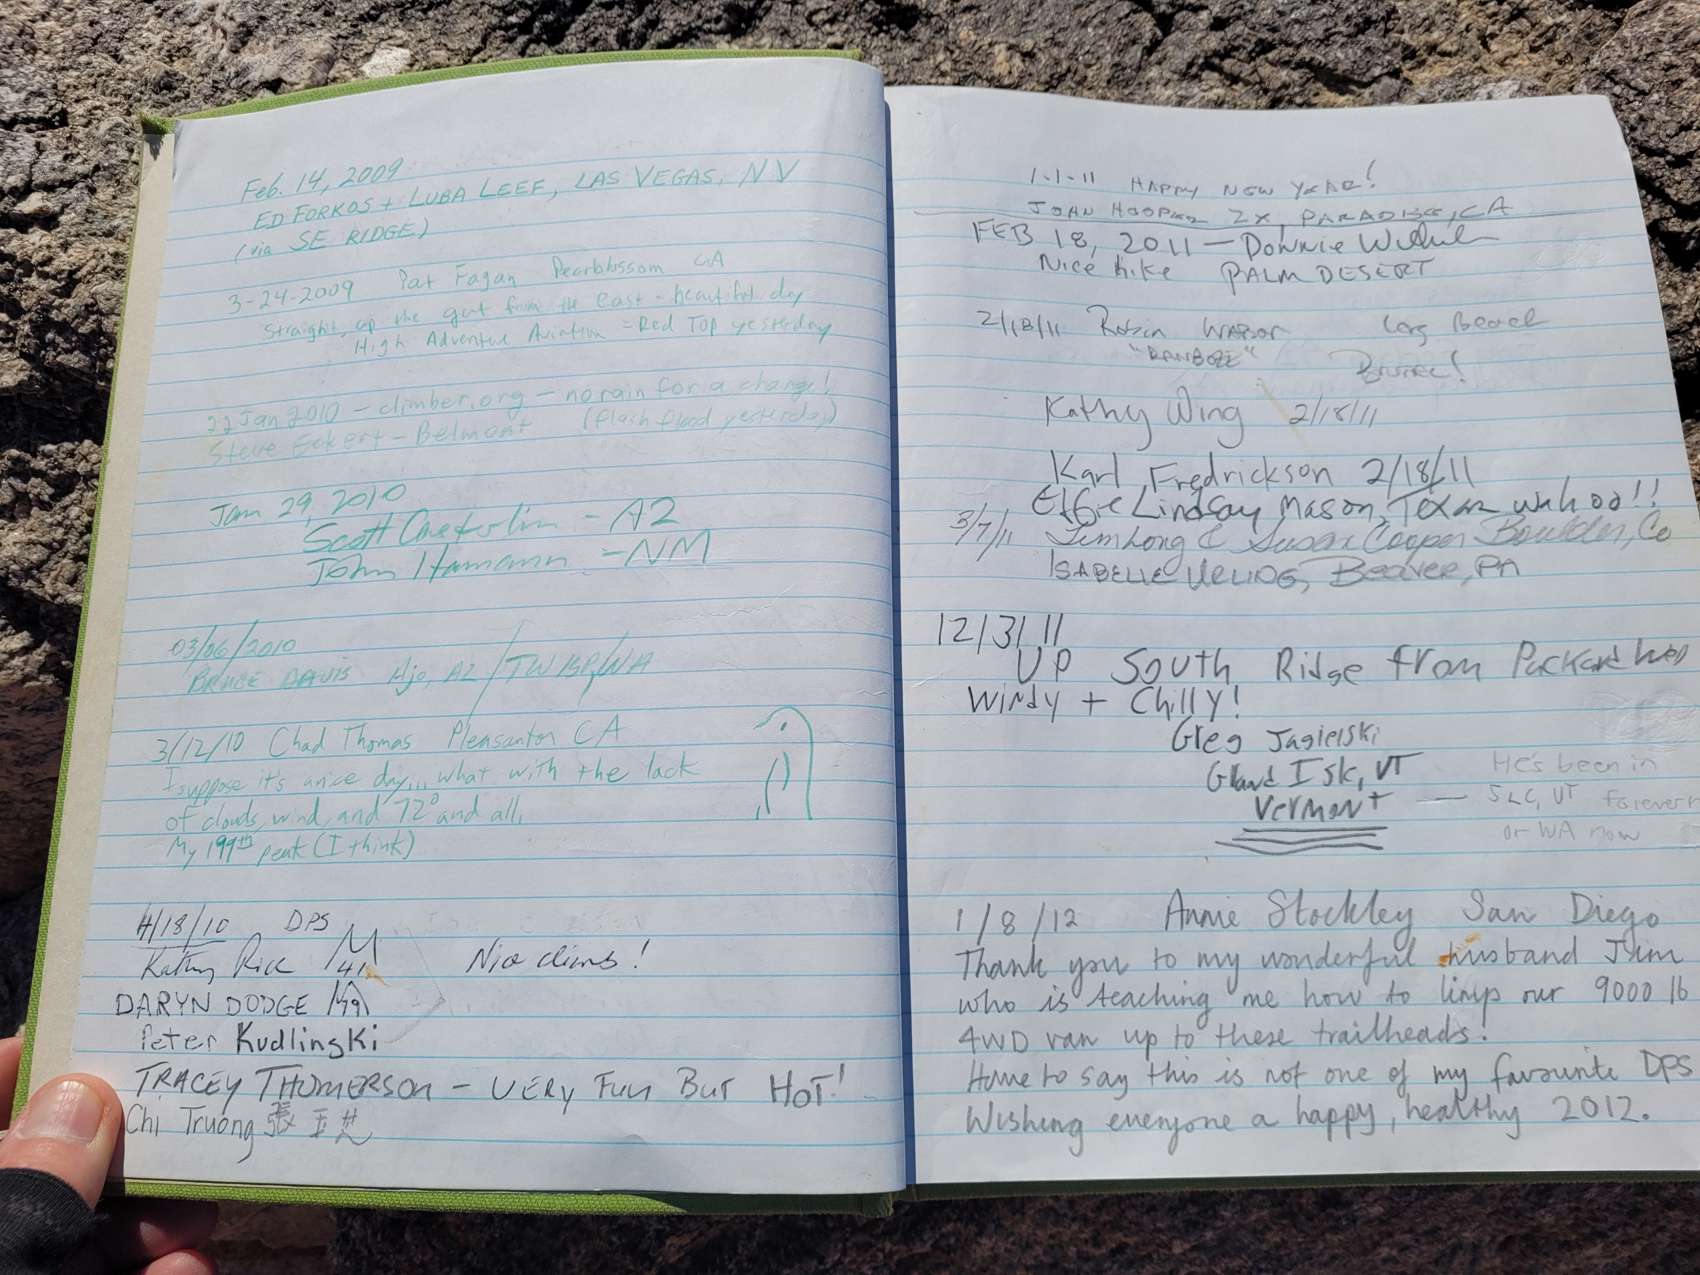 Feb. 14, 2009
ED FORKOS + LUBA LEEF, LAS VEGAS, NV
(via SE RIDGE)
3-24-2009 Pat Fagan Pearblossom CA
Straight up the gut from the East - beautiful day
High Adventure Aviation = Red Top yesterday
22 Jan 2010 - climber.org - no rain for a change!
Steve Eckert - Belmont (flash flood yesterday)
Jan 29, 2010
Scott - AZ
John Hamann - NM
03/06/2010
BRUCE DAVIS Ajo, AZ / TWBP/WA
3/12/10 Chad Thomas Pleasanton CA
I suppose it's a nice day... what with the lack
of clouds, wind, and 72° and all.
My 199th peak (I think)
4/18/10 DPS
Kathy Rice M Nice climb!
DARYN DODGE
Peter Kudlinski
TRACEY THOMERSON - VERY FUN BUT HOT!
Chi Truong 張
1-1-11 HAPPY NEW YEAR!
JOHN HOOPER 2X, PARADISE, CA
FEB 18, 2011 - Donnie
Nice hike PALM DESERT
2/18/11 Robin Long Beach
Kathy Wing 2/18/11
Karl Fredrickson 2/18/11
Effie Lindsay Mason, Texas wahoo!!
3/7/11 Jim Long & Susan Cooper Boulder, Co
ISABELLE Beaver, PA
12/31/11
UP South Ridge from Packard Well
Windy + Chilly!
Greg Jagielski
Grand Isle, VT
Vermont — He's been in
SLC, UT forever
or WA now
1/8/12 Annie Stockley San Diego
Thank you to my wonderful husband Jim
who is teaching me how to limp our 9000 lb
4WD van up to these trailheads!
Have to say this is not one of my favourite DPS
Wishing everyone a happy, healthy 2012.